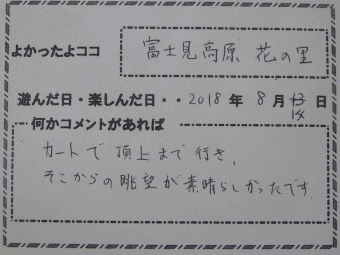 よかったよココ 富士見高原 花の里
遊んだ日・楽しんだ日・・2018 年 8 月 13 日
14
何かコメントがあれば
カートで頂上まで行き、
そこからの眺望が素晴らしかったです